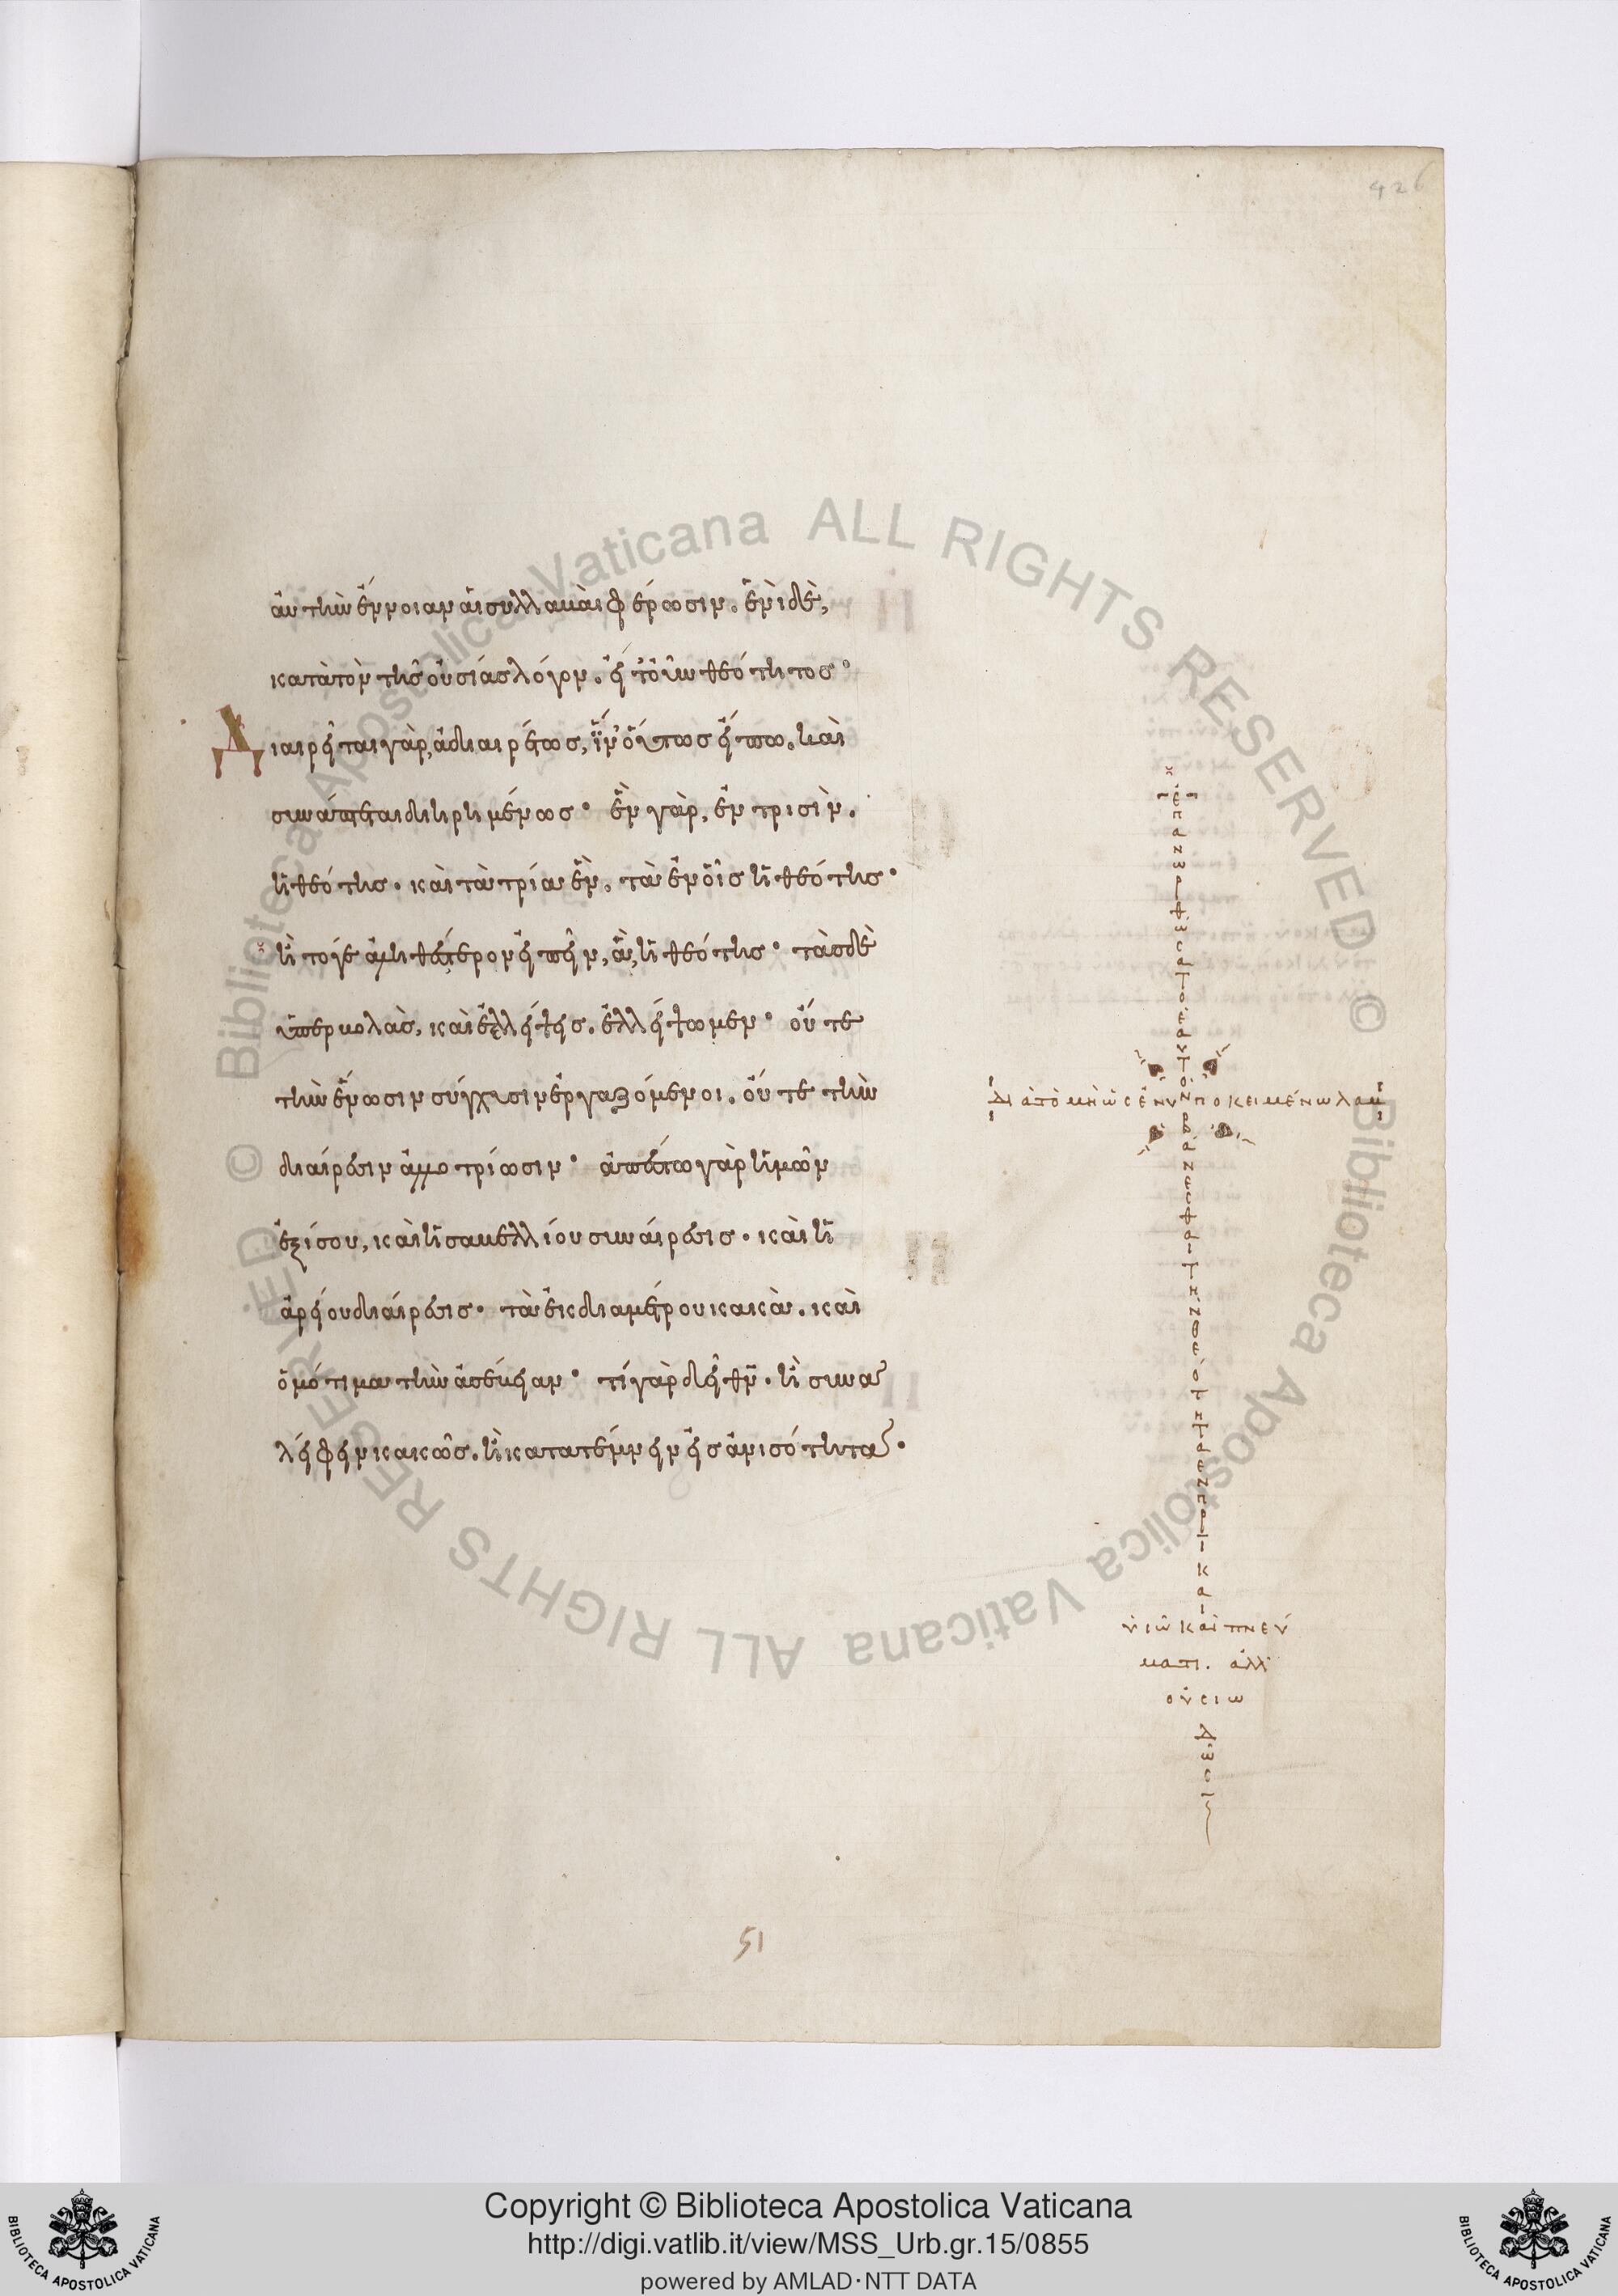 ἂν τὴν ἔννοιαν αἱ συλλαβαὶ φέρωσιν. ἑνὶ δὲ,
κατὰ τὸν τῆς οὐσίας λόγον. εἴτουν θεότητος·
Διαιρεῖται γὰρ, ἀδιαιρέτως, ἵν' οὕτως εἴπω. καὶ
συνάπτεται διηρημένως· ἓν γὰρ, ἐν τρισὶν.
ἡ θεότης. καὶ τὰ τρία ἓν. τὰ ἐν οἷς ἡ θεότης·
ἢ τόγε ἀληθέστερον εἰπεῖν, ἃ, ἡ θεότης· τὰς δὲ
ὑπερβολὰς, καὶ ἐλλείψεις. ἐλλείψωμεν· οὔτε
τὴν ἕνωσιν σύγχυσιν ἐργαζόμενοι. οὔτε τὴν
διαίρεσιν ἀλλοτρίωσιν· ἀπέστω γὰρ ἡμῶν
ἐξίσου, καὶ ἡ σαβελλίου συναίρεσις. καὶ ἡ
ἀρείου διαίρεσις. τὰ ἐκ διαμέτρου κακὰ. καὶ
ὁμότιμα τὴν ἀσέβειαν· τί γὰρ δεῖ θν̄. ἢ συνα
λείφειν κακῶς. ἢ κατατέμνειν εἰς ἀνισότητα.
Διατὸ μὴ ὡς ἐν ὑποκειμένω λαμ
υἱῶ καὶ πνεύ
ματι. ἀλλ'
οὐσιω
δεσι
426
51
Copyright © Biblioteca Apostolica Vaticana
http://digi.vatlib.it/view/MSS_Urb.gr.15/0855
powered by AMLAD·NTT DATA
BIBLIOTECA APOSTOLICA VATICANA
BIBLIOTECA APOSTOLICA VATICANA
© Biblioteca Apostolica Vaticana ALL RIGHTS RESERVED
© Biblioteca Apostolica Vaticana ALL RIGHTS RESERVED